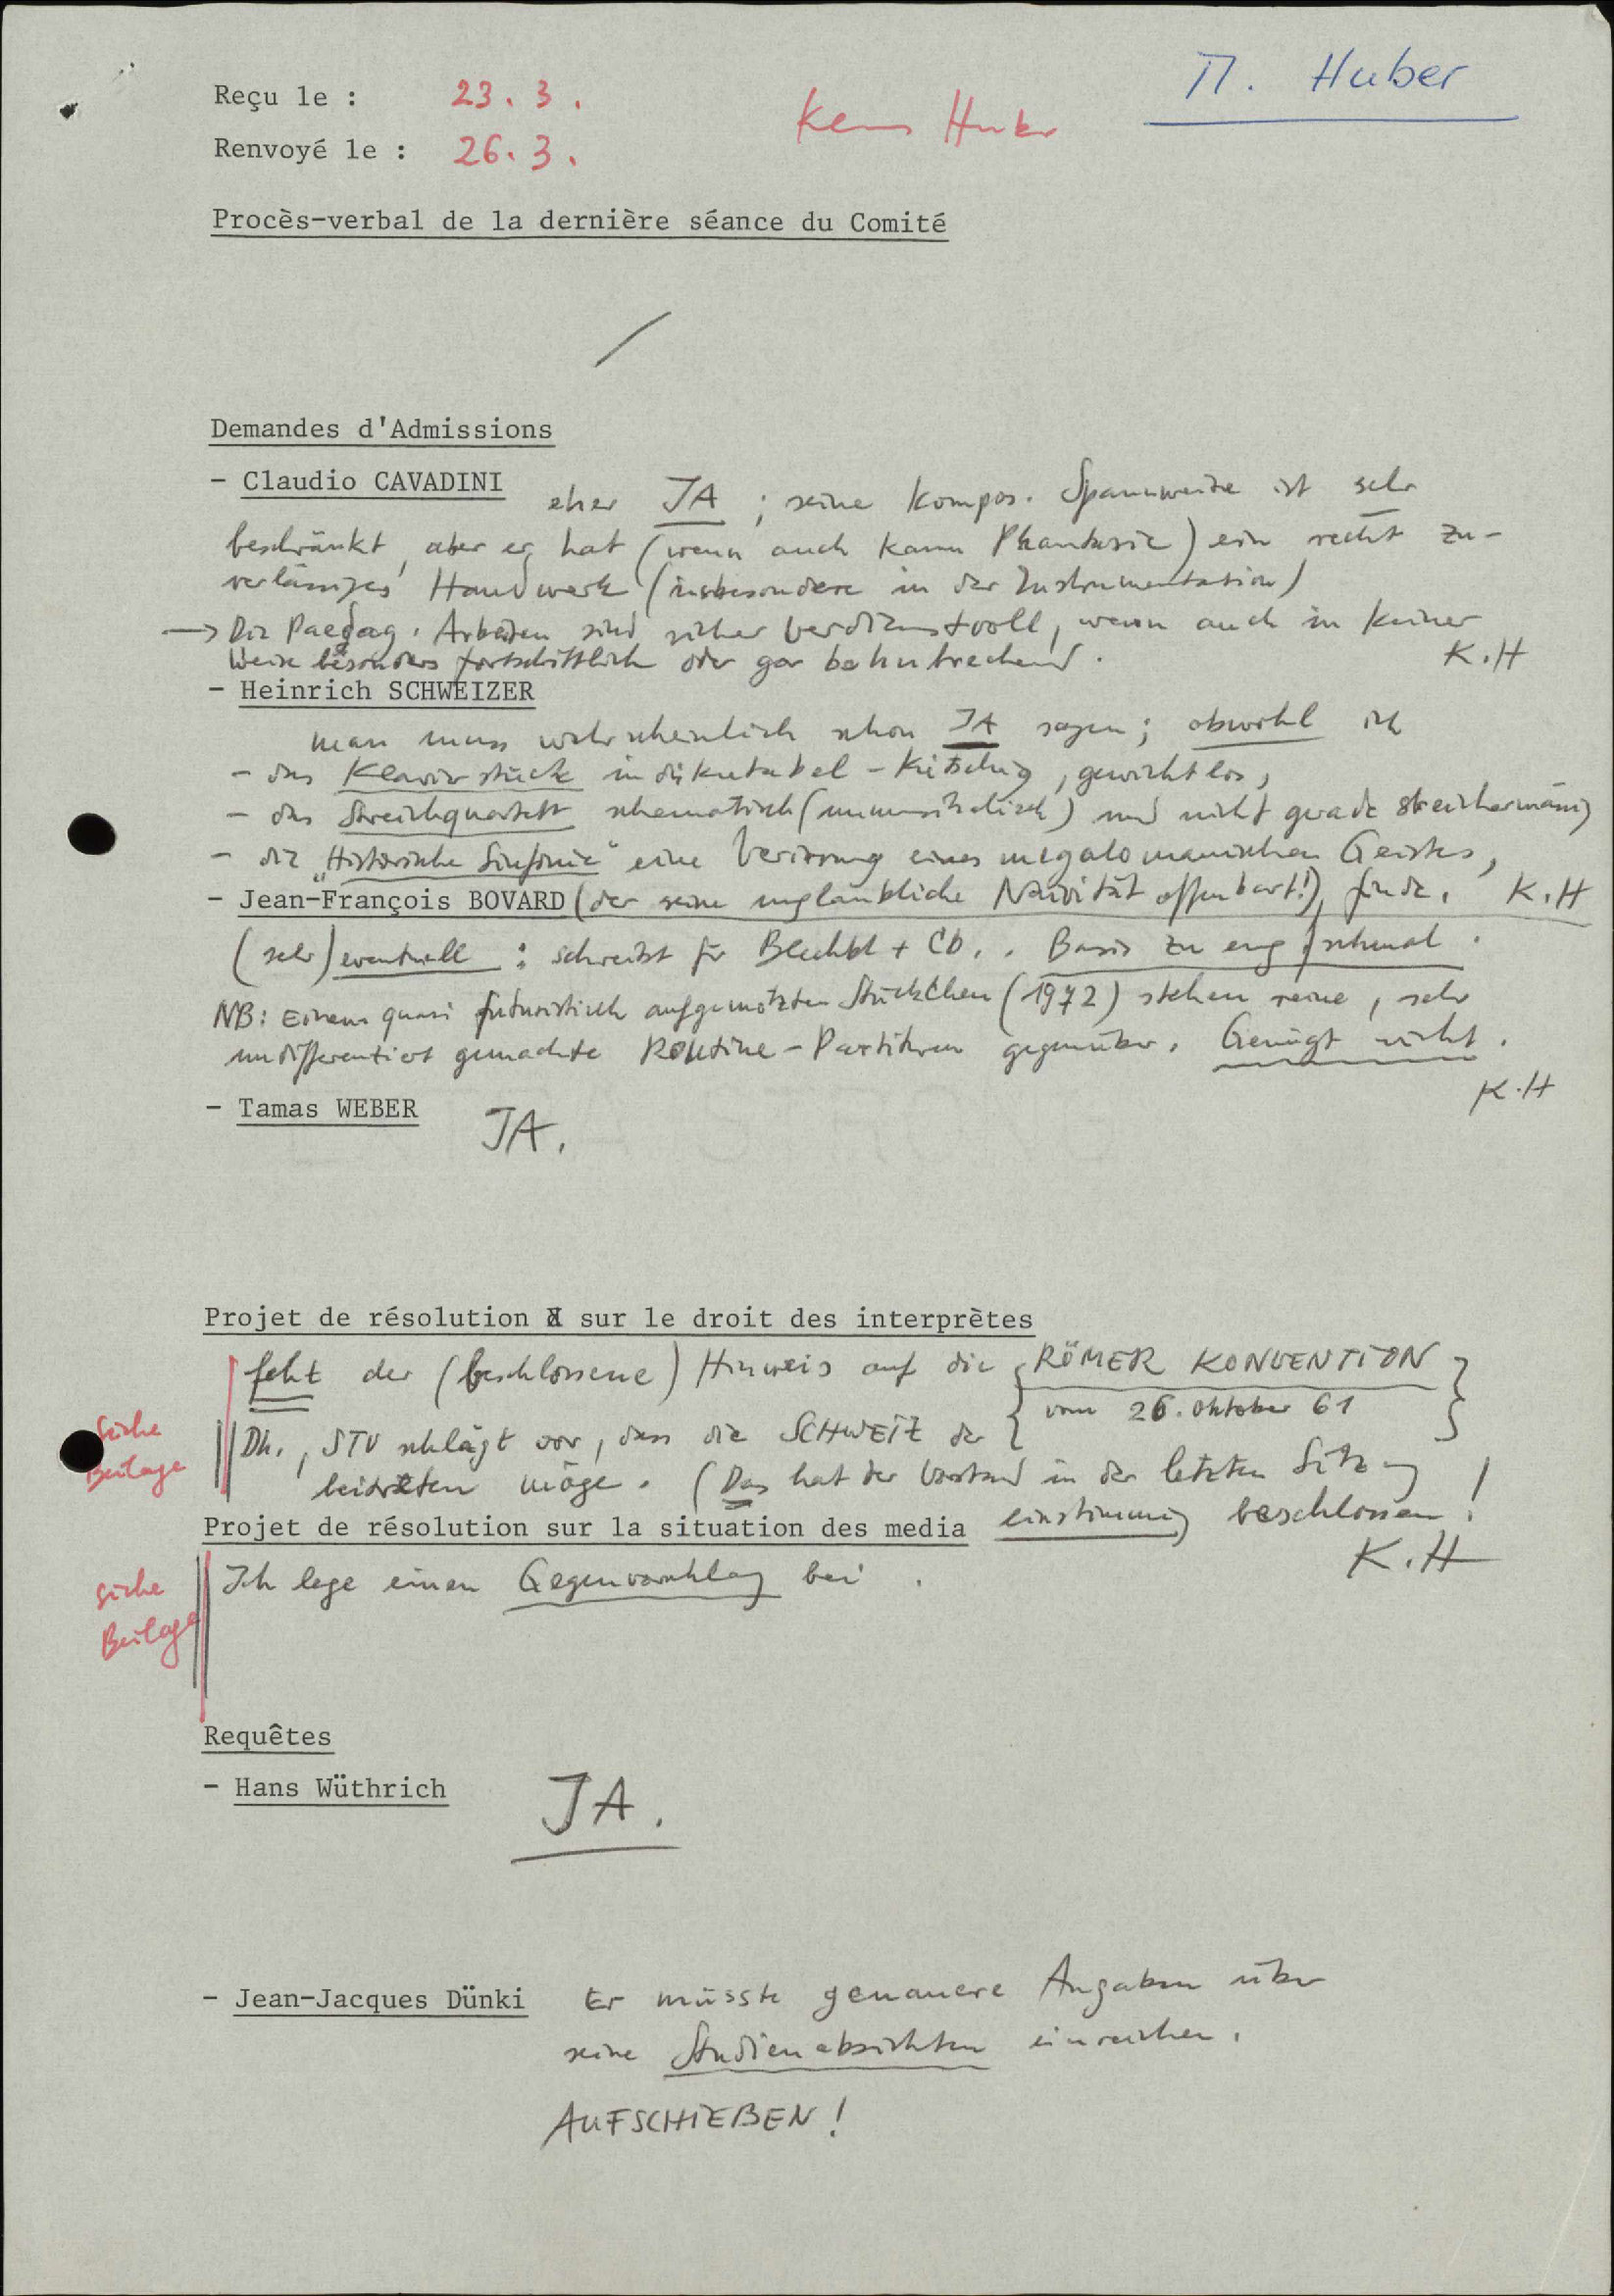 Π. Huber
Reçu le : 23. 3.
Klaus Huber
Renvoyé le : 26. 3.
Procès-verbal de la dernière séance du Comité
Demandes d'Admissions
- Claudio CAVADINI eher JA ; seine Kompos. Spannweite ist sehr
beschränkt, aber er hat (wenn auch kaum Phantasie) ein recht zu-
verlässiges Handwerk (insbesondere in der Instrumentation)
→ Die Paedag. Arbeiten sind sicher verdienstvoll, wenn auch in keiner
Weise besonders fortschrittlich oder gar bahnbrechend. K.H
- Heinrich SCHWEIZER
man muss wahrscheinlich schon JA sagen; obwohl ich
- das Klavierstück indiskutabel-kitschig, gewichtlos,
- das Streichquartett schematisch (unmusikalisch) und nicht gerade streichermässig
- die "Historische Sinfonie" eine Verirrung eines megalomanischen Geistes,
- Jean-François BOVARD (der seine unglaubliche Naivität offenbart!), finde. K.H
(sehr) eventuell : schreibt für Blechbl + CO.. Basis zu eng / schmal.
NB: Einem quasi futuristisch aufgemotzten Stückchen (1972) stehen reine, sehr
undifferenziert gemachte Routine-Partituren gegenüber. Genügt nicht.
K.H
- Tamas WEBER JA.
Projet de résolution sur le droit des interprètes
fehlt der (beschlossene) Hinweis auf die { RÖMER KONVENTION
vom 26. Oktober 61 }
siehe Beilage
Dh., STV schlägt vor, dass die SCHWEIZ der
beitreten möge. (Das hat der Vorstand in der letzten Sitzung
Projet de résolution sur la situation des media einstimmig beschlossen!
K.H
siehe Beilage
Ich lege einen Gegenvorschlag bei.
Requêtes
- Hans Wüthrich JA.
- Jean-Jacques Dünki Er müsste genauere Angaben über
seine Studienabsichten einreichen.
AUFSCHIEBEN!